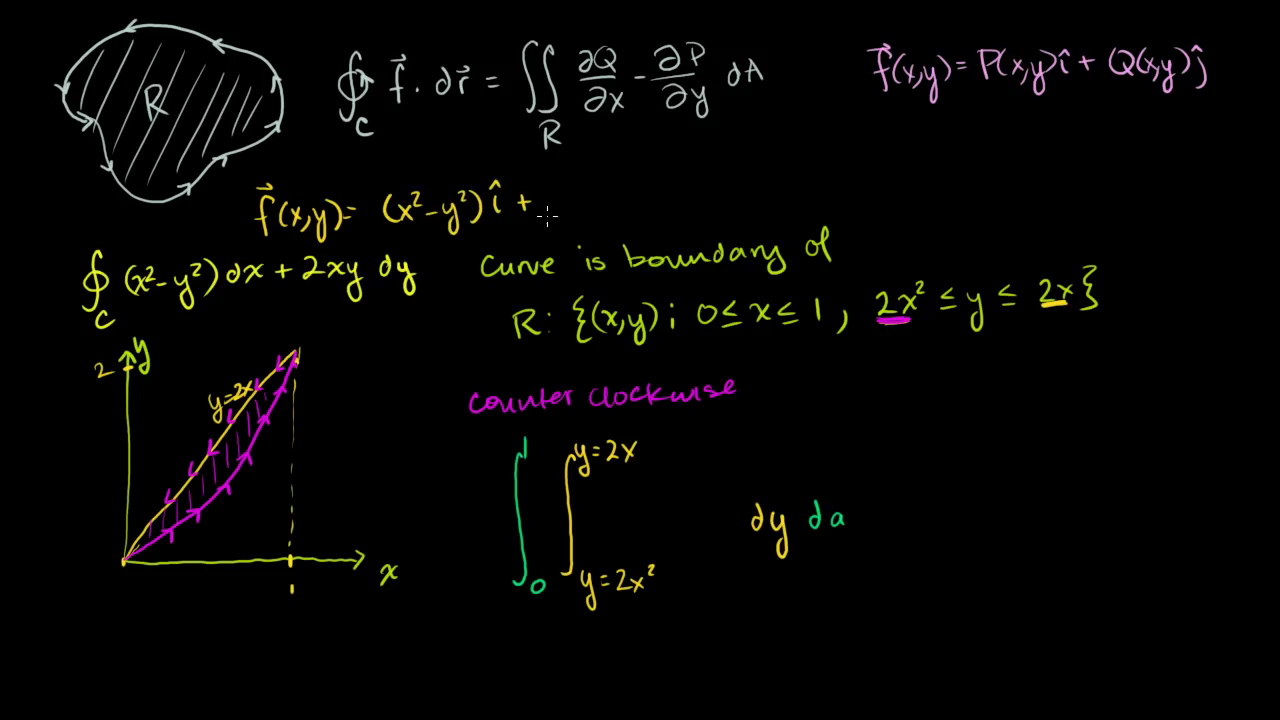 R
∮_C f⃗ · dr⃗ = ∬_R ∂Q/∂x − ∂P/∂y dA
f⃗(x,y) = P(x,y)î + Q(x,y)ĵ
f⃗(x,y) = (x² − y²) î +
∮_C (x² − y²) dx + 2xy dy
Curve is boundary of
R: {(x,y) ; 0 ≤ x ≤ 1, 2x² ≤ y ≤ 2x}
counter clockwise
y
2
y=2x
x
1
∫_0^1 ∫_{y=2x²}^{y=2x} dy da